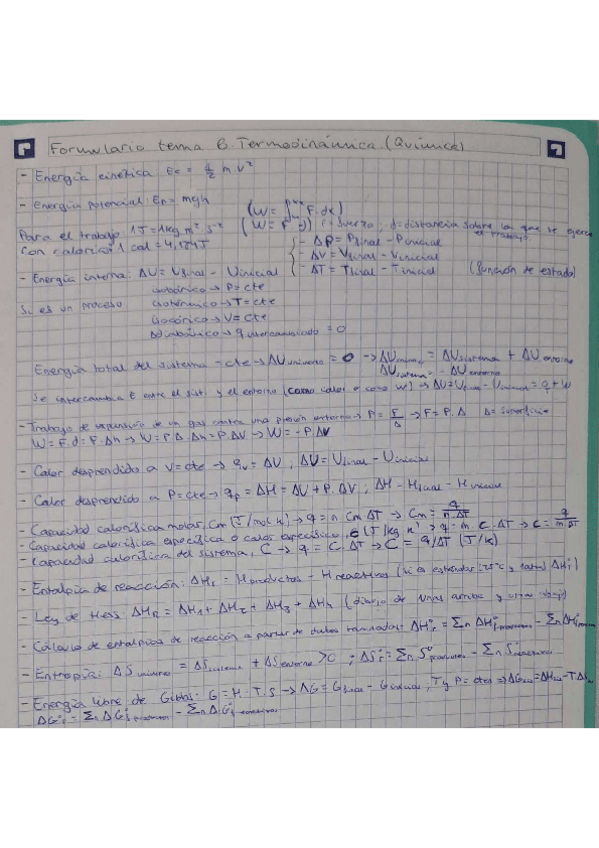 Formulario tema 6. Termodinámica. (Química)
- Energía cinética Ec = 1/2 m v²
- Energía potencial: Ep = mgh
(W = ∫ F. dx)
Para el trabajo 1J = 1kg m² s⁻² (W = F. d) F = fuerza; d = distancia sobre la que se ejerce el trabajo
Con calorías: 1 cal = 4,184J
- ΔP = Pfinal - Pinicial
- ΔV = Vfinal - Vinicial
- ΔT = Tfinal - Tinicial (función de estado)
- Energía interna: ΔU = Ufinal - Uinicial
Si es un proceso
isobárico → P = cte
isotérmico → T = cte
isocórico → V = cte
Adiabático → q intercambiado = 0
Energía total del sistema = cte → ΔU universo = 0 → = ΔU sistema + ΔU entorno
ΔU sistema = - ΔU entorno
Se intercambia E entre el sist. y el entorno (como calor o como W) → ΔU = Ufinal - Uinicial = q + W
- Trabajo de expansión de un gas contra una presión externa → P = F/A → F = P. A A = superficie
W = F. d = F. Δh → W = P. A. Δh = P. ΔV → W = - P. ΔV
- Calor desprendido a V = cte → qv = ΔU ; ΔU = Ufinal - Uinicial
- Calor desprendido a P = cte → qp = ΔH = ΔU + P. ΔV ; ΔH = Hfinal - Hinicial
- Capacidad calorífica molar, Cm [J/mol K] → q = n Cm ΔT → Cm = q/n.ΔT
- Capacidad calorífica específica o calor específico, c [J/kg K] → q = m c. ΔT → c = q/m.ΔT
- Capacidad calorífica del sistema, C → q = C. ΔT → C = q/ΔT (J/K)
- Entalpía de reacción: ΔHr = Hproductos - Hreactivos (si es estándar (25°C y 1atm) ΔH°r)
- Ley de Hess: ΔHR = ΔH1 + ΔH2 + ΔH3 + ΔH4 (dibujo de unas arriba y otras abajo)
- Cálculo de entalpías de reacción a partir de datos tabulados: ΔH°r = Σn ΔH°f productos - Σn ΔH°f reactivos
- Entropía: ΔS universo = ΔS sistema + ΔS entorno > 0 ; ΔS°r = Σn S° productos - Σn S° reactivos
- Energía libre de Gibbs: G = H - T. S → ΔG = Gfinal - Ginicial, T y P = ctes ⇒ = ΔH - TΔS
ΔG°r = Σn ΔG°f productos - Σn ΔG°f reactivos